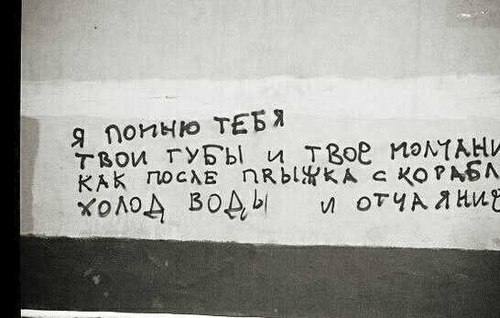 Я ПОМНЮ ТЕБЯ
ТВОИ ГУБЫ И ТВОЕ МОЛЧАНИ
КАК ПОСЛЕ ПRЫЖКА С КОРАБЛ
ХОЛОД ВОДЫ И ОТЧАЯНИЕ